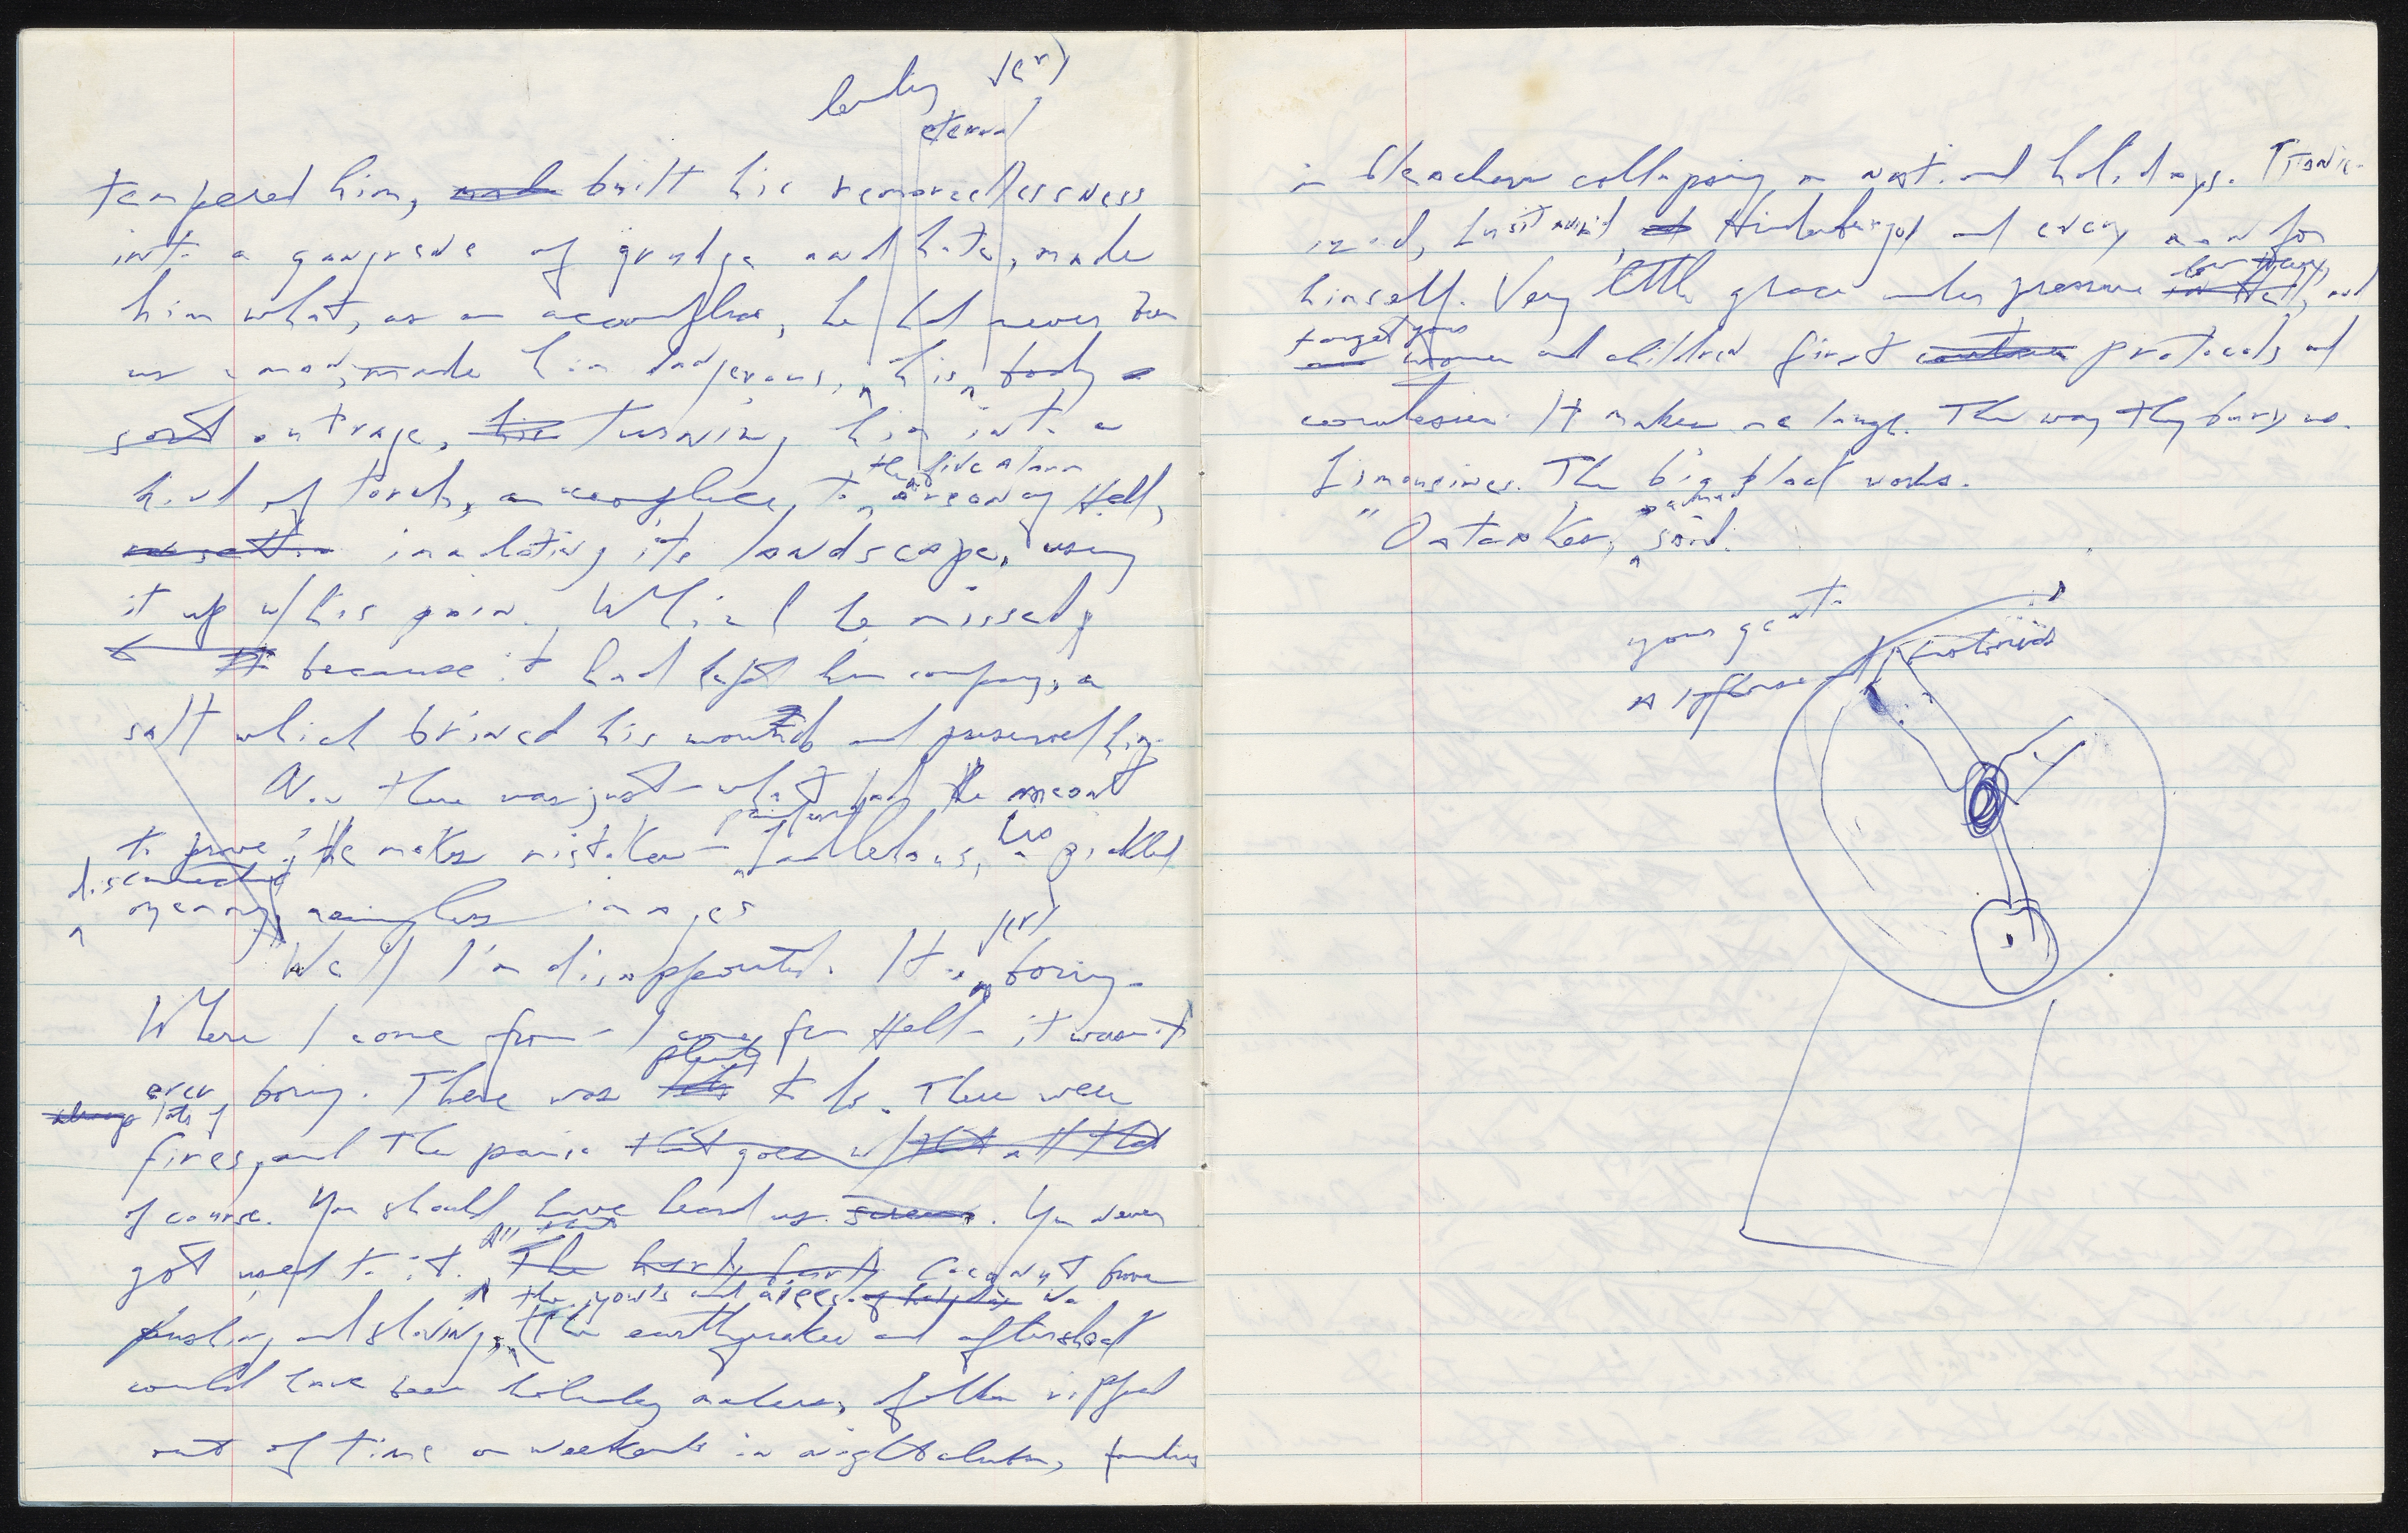 lending √(r)
eternal
tempered him, made built his remorselessness
into a gangrene of grudge and hate, made
him what, as an accomplice, he had never been
as a man, made him dangerous, his body a
sort outrage, his turning him into a
the five alarm
kind of torch, an accomplice to arson of Hell,
insulating its landscape, using
it up w/ his pain. Which he missed
because it had kept him company, a
salt which brined his wounds and preserved him.
Now there was just - what had He meant
to prove? He makes mistakes - Ladlehaus, his pickled
disconnected
memory, meaningless images
√(r)
"Well I'm disappointed. It is boring.
Where I come from - I come from Hell - it wasn't
plenty
ever boring. There was to do. There were
always lots of
fires, and the panic that goes w/ that
of course. You should have heard us scream. You never
All that
got used to it. The hurly burly Cocoanut Grove
the yowls and of holiday
pushing and shoving, (the earthquakes and aftershock
could have been holiday makers, folks ripped
out of time on weekends in nightclubs, families
in bleachers collapsing on national holidays. Titanic-
ized, Lusitania'd, Hindenburg'd and every man for
himself. Very little grace under pressure in Hell, and
forget your
women and children first protocols and
courtesies. It makes me laugh. The way they bury us.
Limousines. The big black works.
"Oataker," said.
your